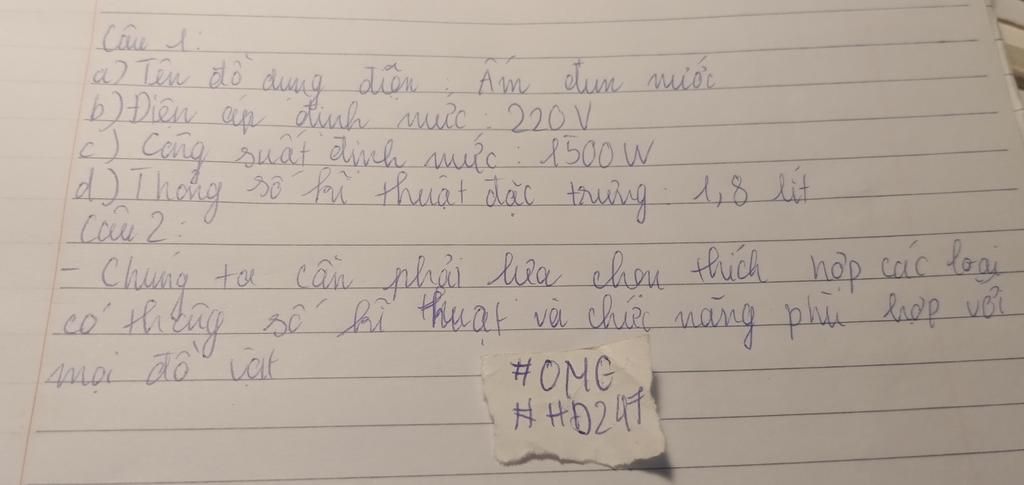 Câu 1:
a) Tên đồ dung điện : Ấm đun nước
b) Điện áp định mức : 220V
c) Công suất định mức : 1500W
d) Thông số kĩ thuật đặc trưng : 1,8 lít
Câu 2 :
- Chúng ta cần phải lựa chọn thích hợp các loại
có thông số kĩ thuật và chức năng phù hợp với
mọi đồ vật
#OMG
#HĐ247